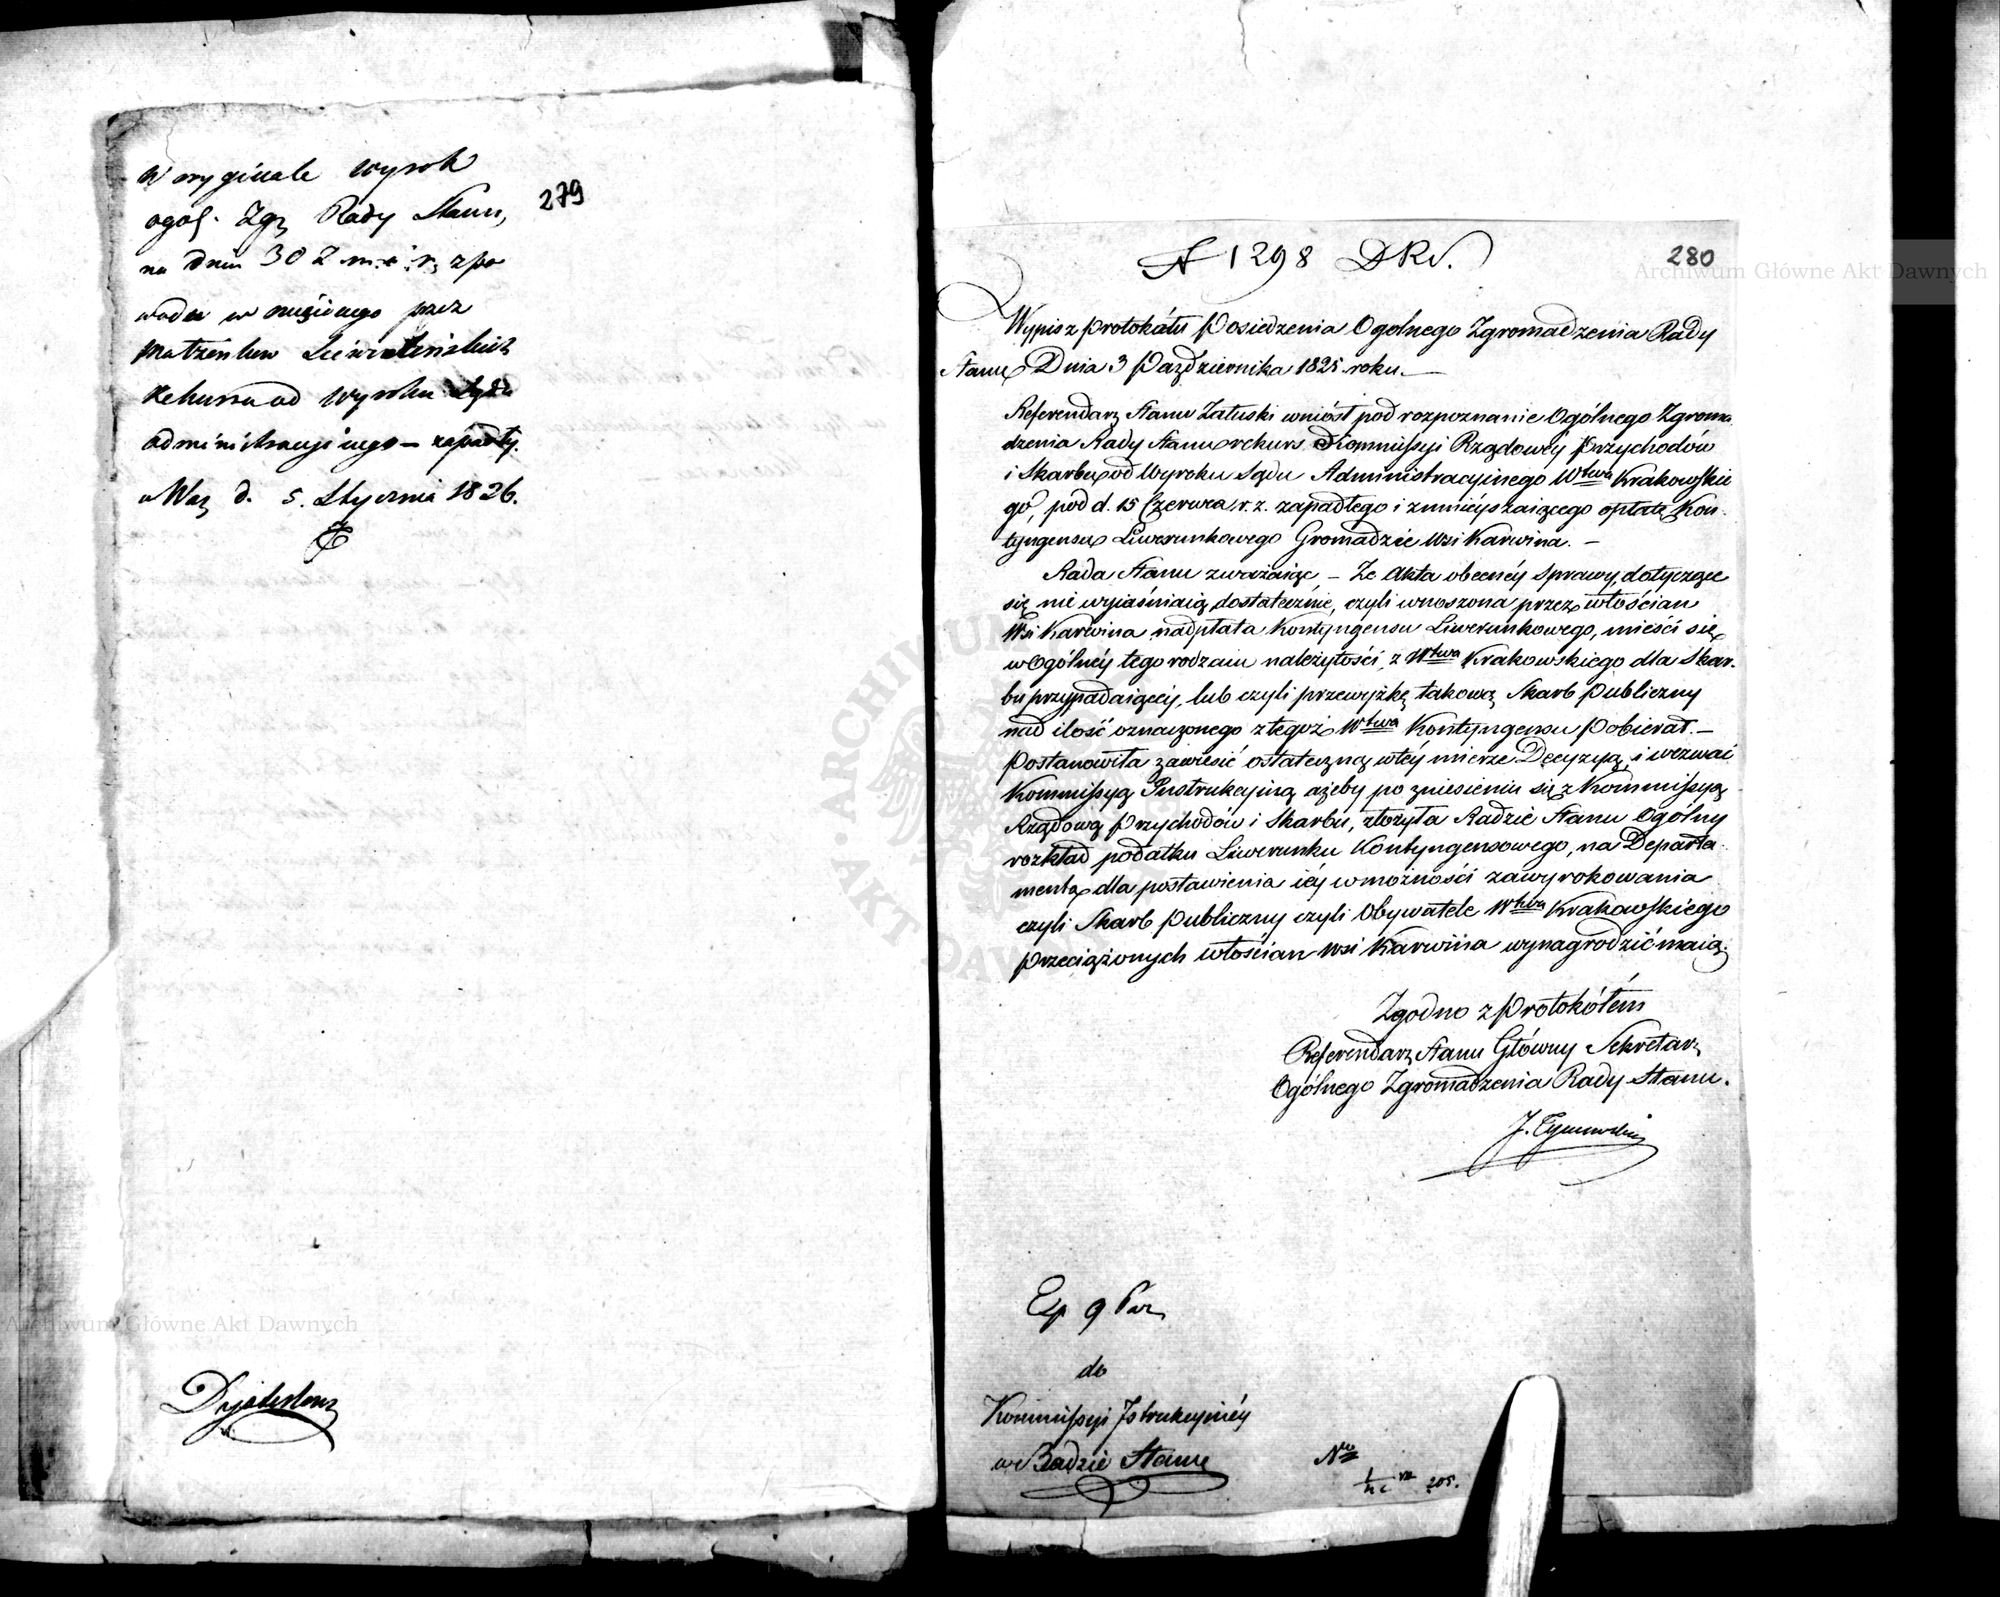 W oryginale wyrok
ogól. Zgr. Rady Stanu,
na dniu 30 z. m. i r. z po
wodu wniesionego przez
Małżonków
Rekursu od Wyroku Sądu
administracyjnego — zapadły.
w War. d. 5. Stycznia 1826.
279
N 1298 DRS.
280
Wypis z Protokółu Posiedzenia Ogolnego Zgromadzenia Rady
Stanu Dnia 3 Października 1825 roku.—
Referendarz Stanu Załuski wniósł pod rozpoznanie Ogólnego Zgroma-
dzenia Rady Stanu rekurs Kommissyi Rządowéy Przychodów
i Skarbu od Wyroku Sądu Administracyinego Wtwa Krakowskie
go, pod d. 15 Czerwca r. z. zapadłego i zmnieyszaiącego opłatę Kon-
tyngensu Liwerunkowego Gromadzie Wsi Karwina. —
Rada Stanu zważaiąc, — Ze Akta obecnéy sprawy, dotyczące
się nie wyiaśniaią dostatecznie, czyli wnoszona przez włościan
Wsi Karwina nadpłata Kontyngensu Liwerunkowego, mieści się
w Ogólnéy tego rodzaiu należytości, z Wtwa Krakowskiego dla Skar-
bu przypadaiącéy, lub czyli przewyżkę takową Skarb Publiczny
nad ilość oznaczonego z tegoż Wtwa Kontyngensu Pobierał.—
Postanowiła zawiesić ostateczną w téy mierze Decyzyą, i wezwać
Kommissyą Instrukcyiną ażeby po zniesieniu się z Kommissyą
Rządową Przychodów i Skarbu, złożyła Radzie Stanu Ogólny
rozkład podatku Liwerunku Kontyngensowego, na Departa-
menta dla postawienia iéy w możności zawyrokowania
czyli Skarb Publiczny czyli Obywatele Wtwa Krakowskiego
przeciążonych włościan Wsi Karwina wynagrodzić maią.
Zgodno z Protokółem
Referendarz Stanu Główny Sekretarz
Ogólnego Zgromadzenia Rady Stanu.
J. Tymowski
Exp 9 Paz
do
Kommissyi Istrukcyinéy
w Radzie Stanu
Nro
205.
Archiwum Główne Akt Dawnych
Archiwum Główne Akt Dawnych